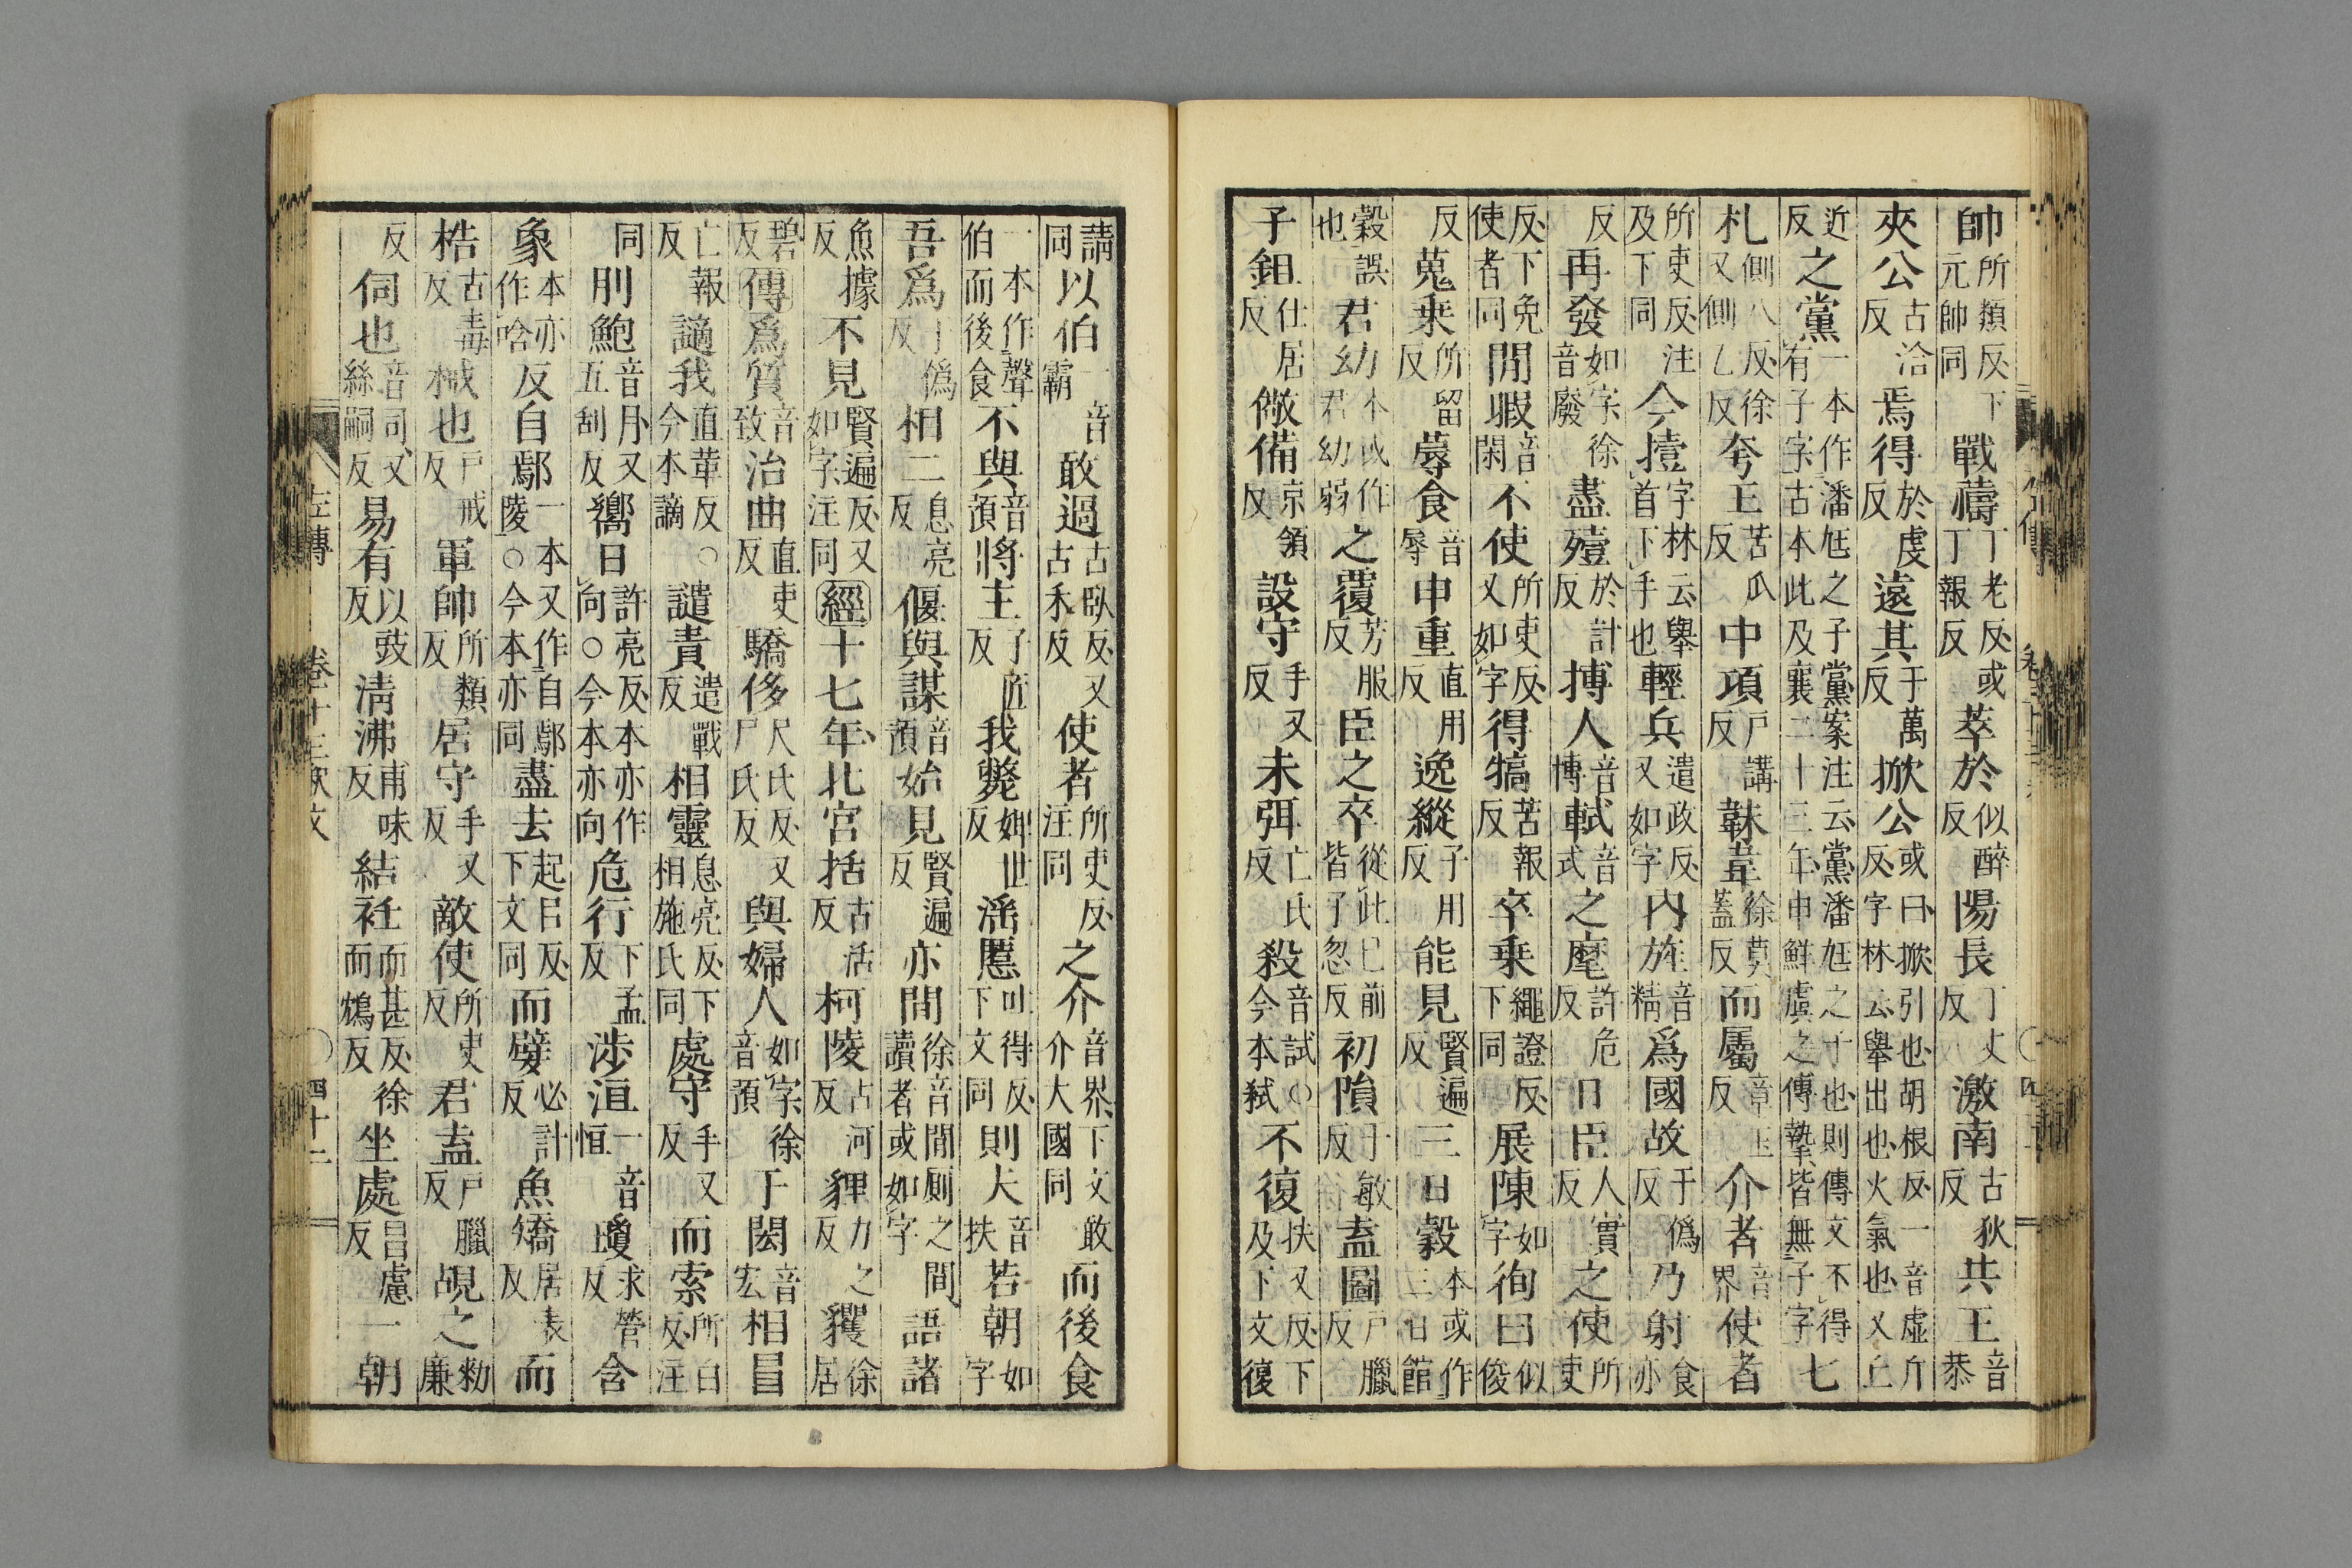 帥所類反下元帥同戰禱丁老反或丁報反萃於似醉反陽長丁丈反激南古狄反共王音恭
夾公古洽反焉得於虔反遠其于萬反掀公或曰掀引也胡根反一音虛斤反字林云舉出也火氣也又丘
近反之黨一本作潘尫之子黨案注云黨潘尫之子也則傳文不得有子字古本此及襄二十三年申鮮虞之傳摯皆無子字七
札側八反徐又側乙反夸王苦瓜反中項戶講反韎韋徐莫蓋反而屬章玉反介者音界使者
所吏反注及下同今撎字林云舉首下手也輕兵遣政反又如字內旌音精爲國故于僞反乃射食亦
反再發如字徐音廢盡殪於計反搏人音博軾音式之麾許危反日臣人實反之使所吏
反下免使者同閒暇音閑不使所吏反又如字得犒苦報反卒乘繩證反下同展陳如字徇曰似俊
反蒐乘所留反蓐食音辱申重直用反逸縱子用反能見賢遍反三日穀本或作三日館
穀誤也君幼本或作君幼弱之覆芳服反臣之卒從此已前皆子忽反初隕于敏反盍圖戶臘反
子鉏仕居反儆備京領反設守手又反未弭亡氏反殺音試○今本弑不復扶又反下及下文復
請同以伯一音霸敢過古臥反又古禾反使者所吏反注同之介音界下文介大國同敢而後食
一本作聲伯而後食不與音預將主子匠反我斃婢世反淫慝吐得反下文同則夫音扶若朝如字
吾爲于僞反相二息亮反偃與謀音預始見賢遍反亦間徐音閒厠之間讀者或如字語諸
魚據反不見賢遍反又如字注同經十七年北宮括古活反柯陵古河反貍力之反貜徐居
碧反傳爲質音致治曲直吏反驕侈尺氏反又尸氏反與婦人如字徐音預于閎音宏相冒
亡報反讁我直革反○今本謫譴責遣戰反相靈息亮反下相施氏同處守手又反而索所白反注
同刖鮑音月又五刮反嚮日許亮反本亦作向○今本亦向危行下孟反涉洹一音恒瓊求營反含
象本亦作唅反自鄢一本又作自鄢陵○今本亦同盡去起呂反下文同而嬖必計反魚矯居表反而
梏古毒反械也戶戒反軍帥所類反居守手又反敵使所吏反君盍戶臘反覘之勑廉
反伺也音司又絲嗣反易有以豉反淸沸甫味反結衽而甚反徐而鴆反坐處昌慮反一朝
左傳 卷十三 欵文 四十二